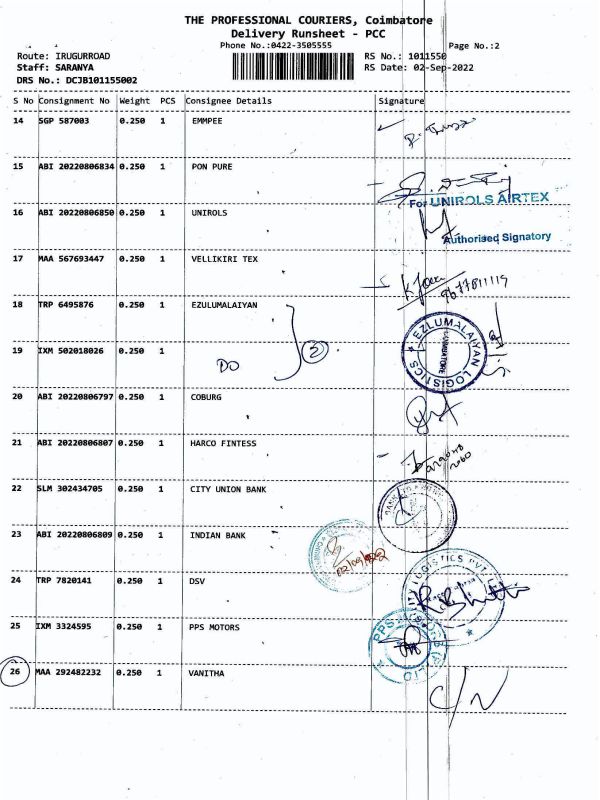 THE PROFESSIONAL COURIERS, Coimbatore
Delivery Runsheet - PCC
Phone No.:0422-3505555
Page No.:2
Route: IRUGURROAD
RS No.: 1011550
Staff: SARANYA
RS Date: 02-Sep-2022
DRS No.: DCJB101155002
S No Consignment No Weight PCS Consignee Details Signature
14 SGP 587003 0.250 1 EMMPEE
15 ABI 20220806834 0.250 1 PON PURE
For UNIROLS AIRTEX
16 ABI 20220806850 0.250 1 UNIROLS
Authorised Signatory
17 MAA 567693447 0.250 1 VELLIKIRI TEX
9677811119
18 TRP 6495876 0.250 1 EZULUMALAIYAN
EZLUMALAIYAN LOGISTICS
COIMBATORE
19 IXM 502018026 0.250 1 DO 2
20 ABI 20220806797 0.250 1 COBURG
21 ABI 20220806807 0.250 1 HARCO FINTESS
22 SLM 302434705 0.250 1 CITY UNION BANK
23 ABI 20220806809 0.250 1 INDIAN BANK
24 TRP 7820141 0.250 1 DSV
LOGISTICS PVT
25 IXM 3324595 0.250 1 PPS MOTORS
PPS
26 MAA 292482232 0.250 1 VANITHA